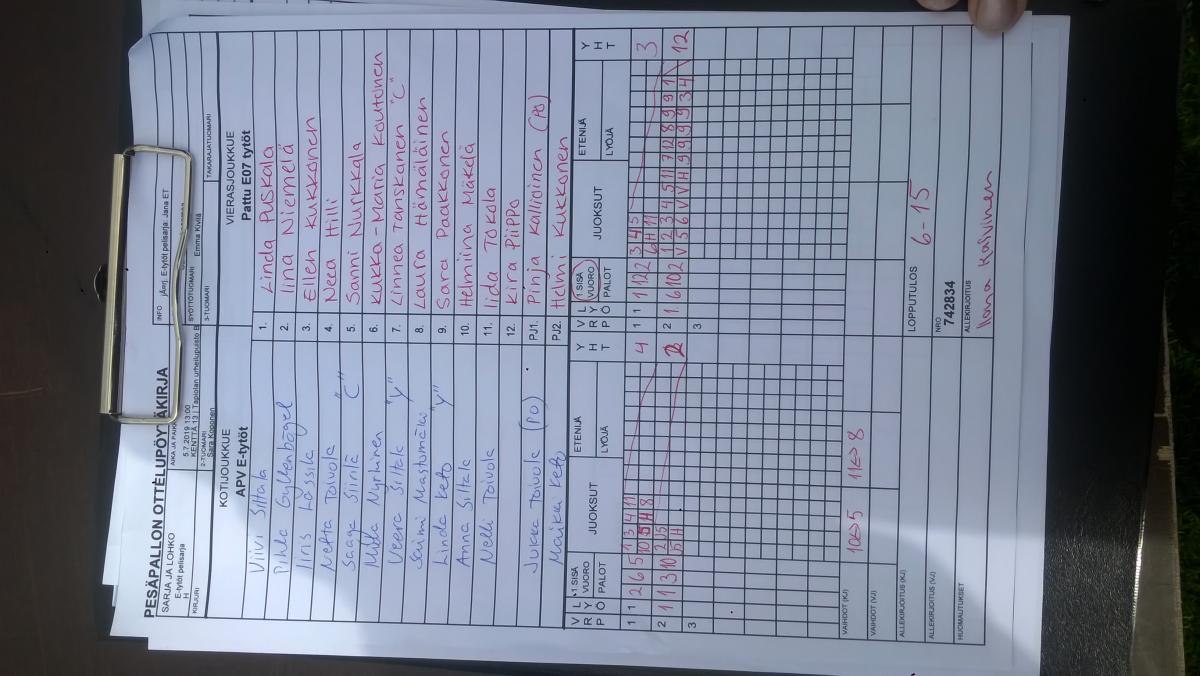 PESÄPALLON OTTELUPÖYTÄKIRJA
SARJA JA LOHKO
E-tytöt pelisarja
H
AIKA JA PAIKKA
5.7.2019 13:00
KENTTÄ 13 | Tapiolan urheilupuisto
INFO
jÄrnj. E-tytöt pelisarja: Jana ET
KIRJURI
2-TUOMARI
Sara Koponen
SYÖTTÖTUOMARI
Emma Kivilä
3-TUOMARI
TAKARAJATUOMARI
KOTIJOUKKUE
APV E-tytöt
VIERASJOUKKUE
Pattu E07 tytöt
Viivi Siltala
1. Linda Puskala
Pihla Gyllenbögel
2. Iina Niemelä
Iiris Lassila
3. Ellen Kukkonen
Netta Toivola
4. Neea Hilli
Saaga Siirilä "C"
5. Sanni Nurkkala
Milla Nyrhinen
6. Kukka-Maria Koutonen
Veera Siltala "Y"
7. Linnea Tanskanen "C"
Saimi Mastomäki
8. Laura Hämäläinen
Linda Keto "Y"
9. Sara Paakkonen
Anna Siltala
10. Helmiina Mäkelä
Nelli Toivola
11. Iida Tokola
12. Kira Piippo
Jukka Toivola (PO)
PJ1. Pinja Kallioinen (PJ)
Maikki Keto
PJ2. Helmi Kukkonen
V R L Y P Ö
1.SISÄ VUORO
PALOT
JUOKSUT
ETENIJÄ
LYÖJÄ
Y H T
V R L Y P Ö
1.SISÄ VUORO
PALOT
JUOKSUT
ETENIJÄ
LYÖJÄ
Y H T
1 2 6 5 1 3 4 11 4
10 5 H 8
1 1 1 12 2 3 4 5 3
6 H 11
2 1 1 3 10 2 15 2
5 H
2 1 6 10 2 1 2 3 4 5 11 7 12 8 9 9 1 12
V 5 6 V V H 9 9 9 9 3 4
3
3
VAIHDOT (KJ)
10<>5 11<>8
VAIHDOT (VJ)
ALLEKIRJOITUS (KJ)
LOPPUTULOS
6-15
ALLEKIRJOITUS (VJ)
NRO
742834
HUOMAUTUKSET
ALLEKIRJOITUS